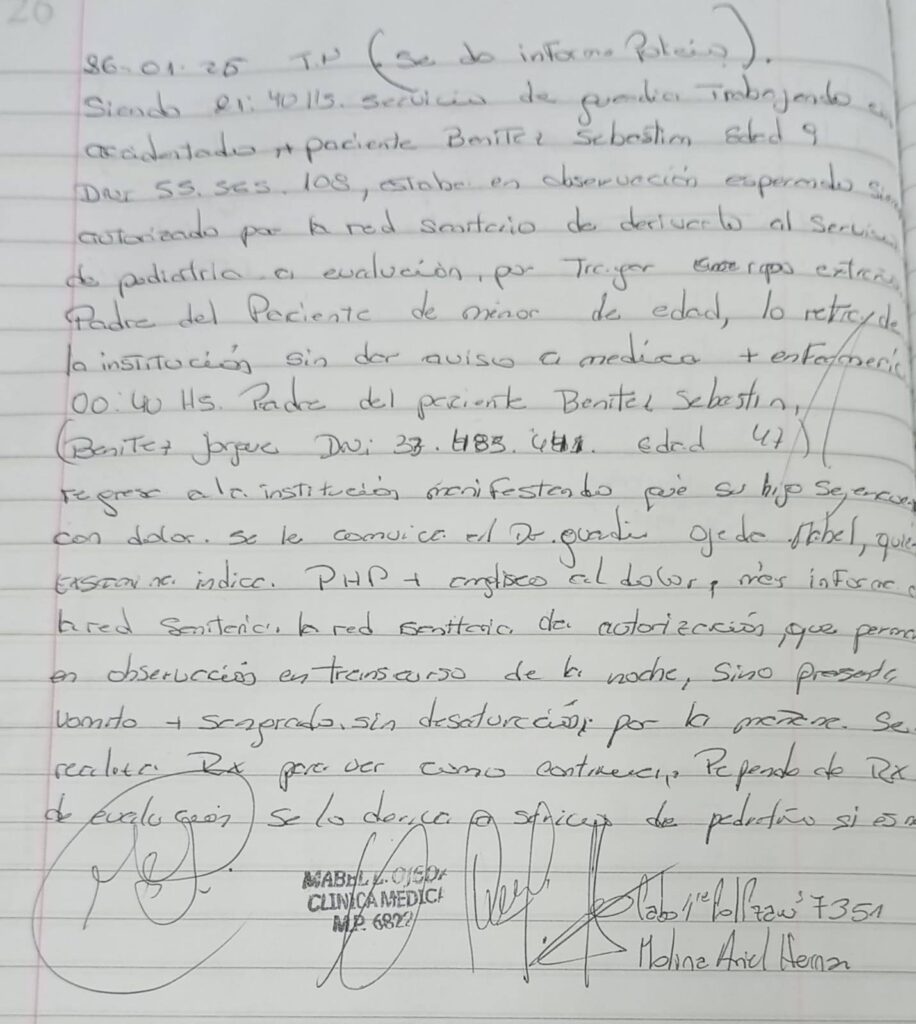 26
26.01.25 T.N (Se da informo Policia).
Siendo 21:40 Hs. servicio de guardia Trabajando
accidentado + paciente Benitez Sebastian Edad 9
DNI 55. 108, estaba en observación esperando
autorizado por la red sanitaria de derivarlo al Servicio
de pediatria a evalución, por Trager extra
Padre del Paciente de menor de edad, lo retira de
la institución sin dar aviso a medica + enfermeria
00:40 Hs. Padre del paciente Benitez Sebastin,
(Benitez Jorgue DNi 37. 483. edad 47)
regresa a la institución manifestando que su hijo
con dolor. se le comuica al Dr guardia Ojeda Mabel, quie
indica. PHP + anglisco al dolor, mes informa a
la red Senitaria. la red senitaria da autorización, que perma
en observacción en transcurso de la noche, Sino presenta
vomito + sangrado. sin desaturación por la mañana. Se
realiza Rx para ver como continua. Rx
de evaluación se lo deriva a de si es
MABEL L. OJEDA
CLINICA MEDICA
M.P. 6822
7351
Molina Ariel Hernan